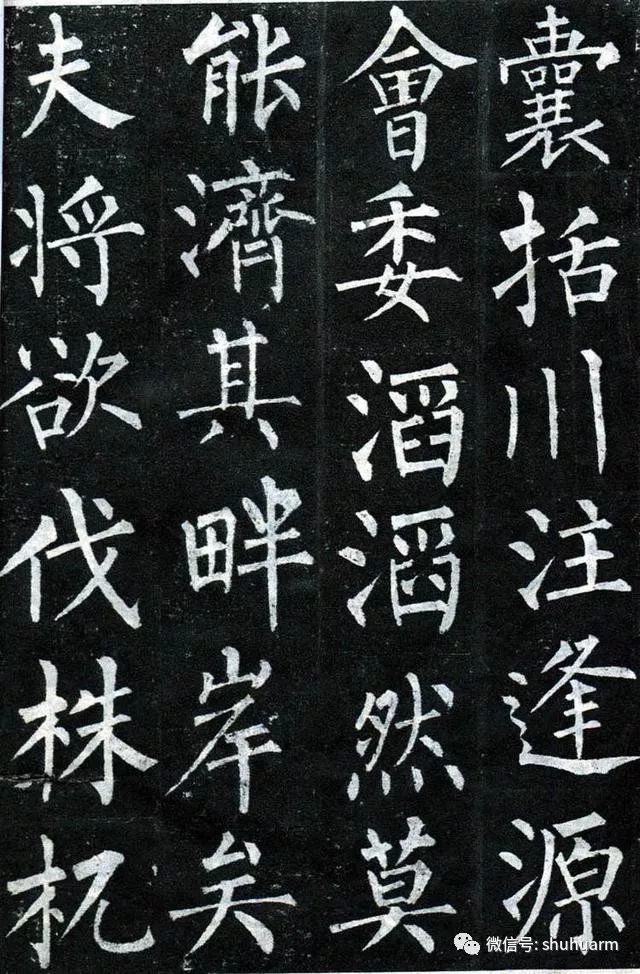 囊括川注逢源
會委滔滔然莫
能濟其畔岸矣
夫将欲伐株杌
微信号: shuhuarm